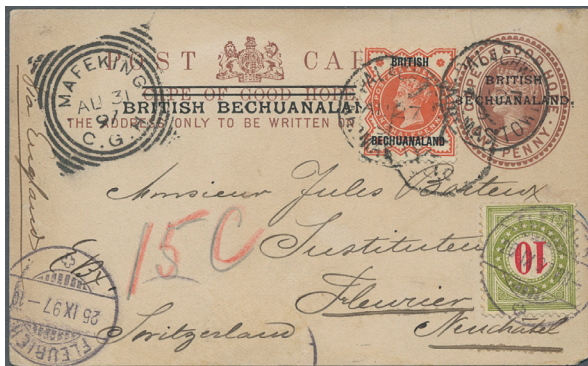 POST CARD
CAPE OF GOOD HOPE
BRITISH BECHUANALAND
THE ADDRESS ONLY TO BE WRITTEN ON
MAFEKING
AU 31
97
C.G.H
BRITISH
BECHUANALAND
CAPE OF GOOD HOPE
BRITISH
BECHUANALAND.
ONE PENNY
via England
Monsieur Jules
Instituteur
15 C
Fleurier
Neuchatel
Switzerland
10
FLEURIER
26 IX 97 - 10